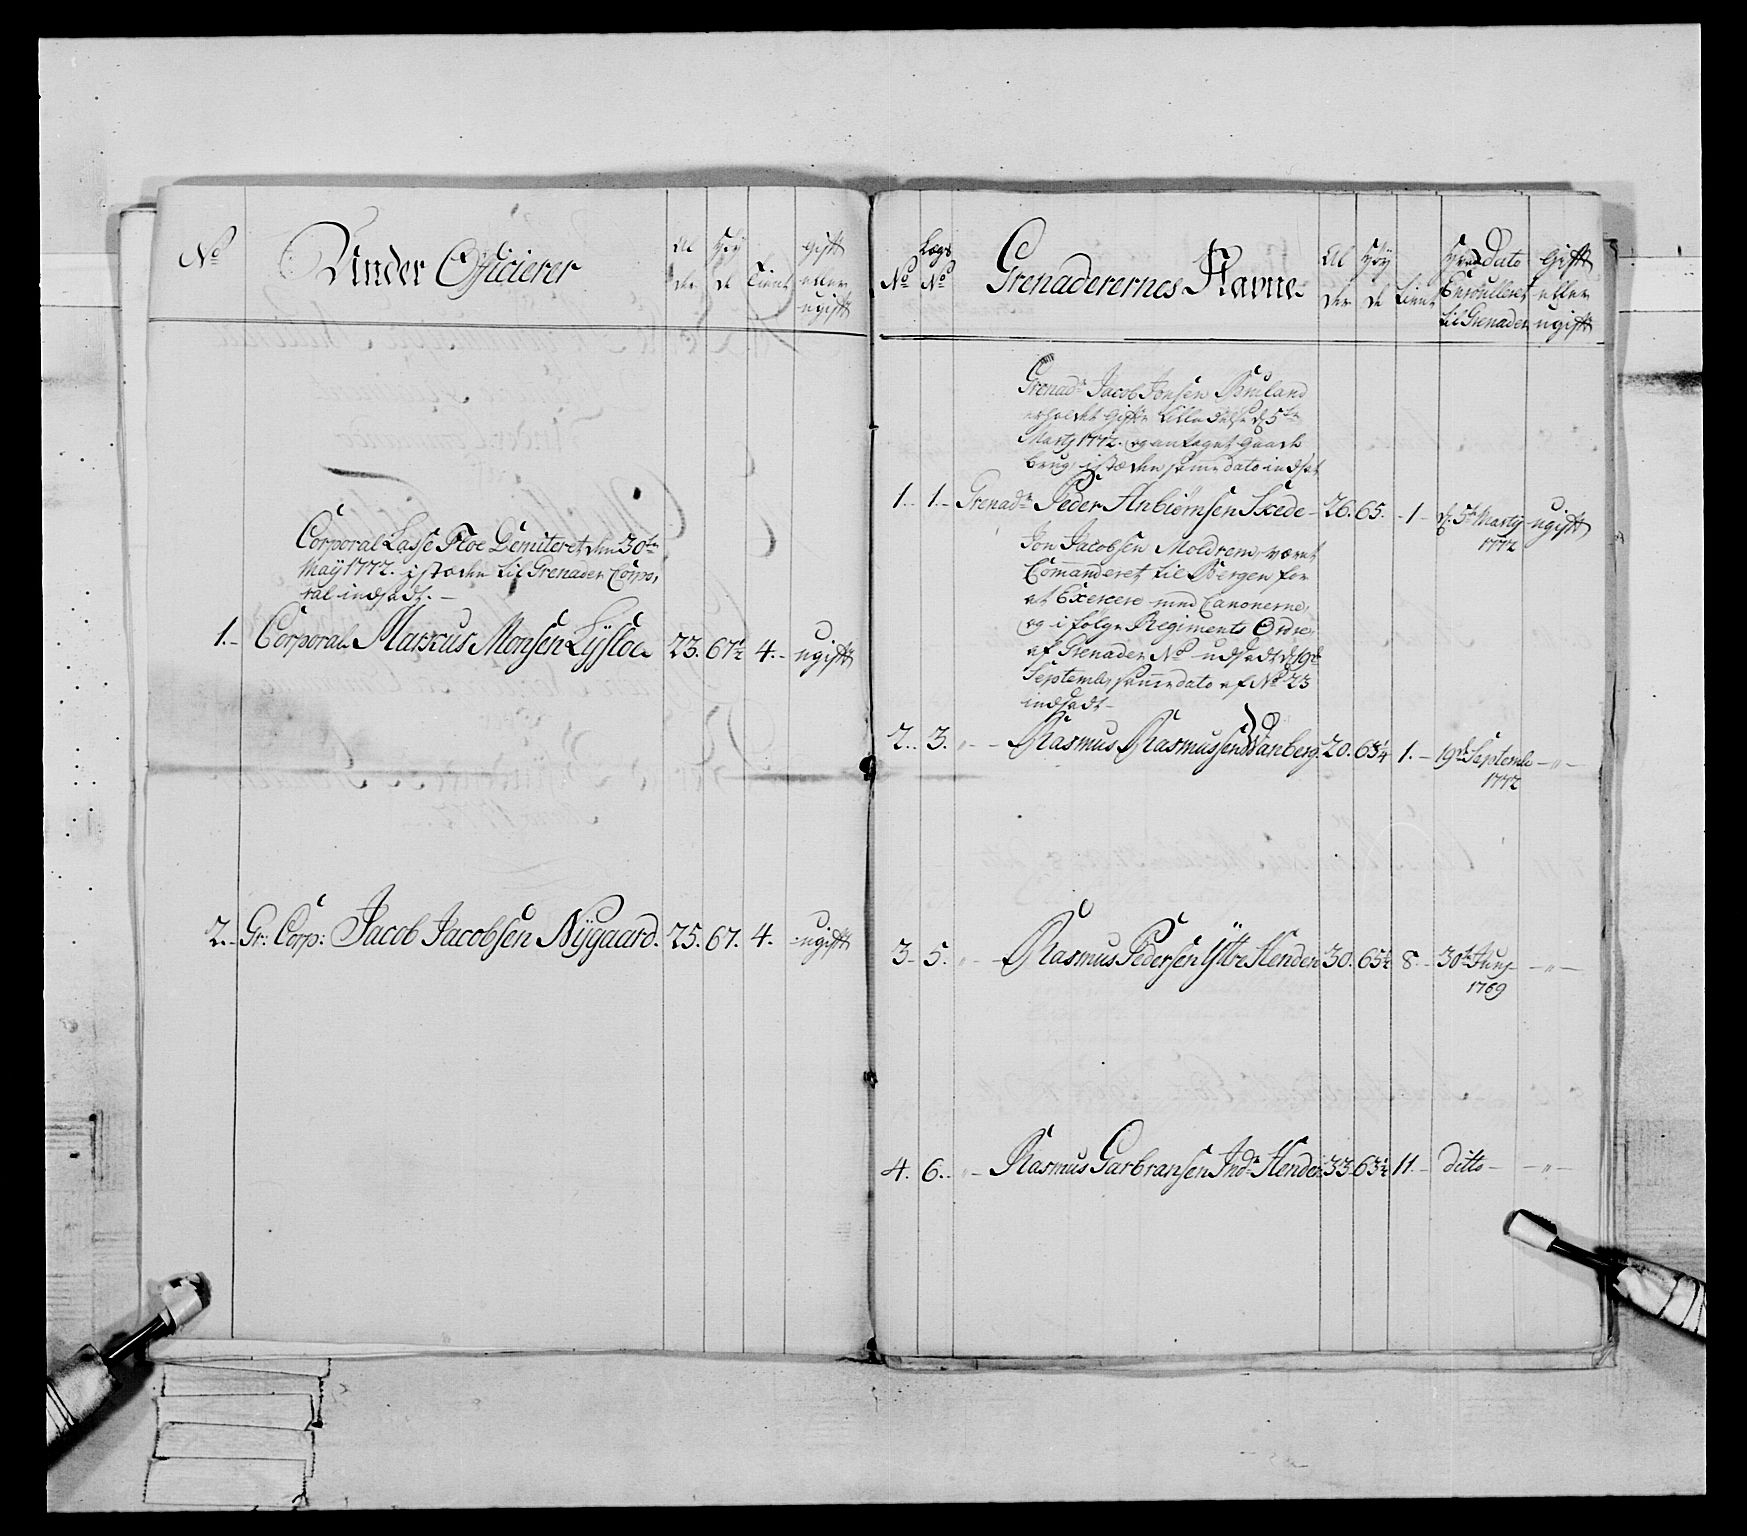 No
Under Officierer
Al
der
Høy
de
Tient
gift
eller
ugift
Corporal Lasse Floe Demiteret den 30te
May 1772. i stæden til Grenader Corpo,
ral indsadt. –
1. – Corporal Markus Monsen Lysloe 23. 67½ 4. – ugift
2. – Gr: Corp: Jacob Jacobsen Nygaard. 25. 67. 4. – ugift
No
Lægs
No
Grenaderernes Navne
Al
der
Høy
de
Tient
Dato
Enroulleret
til Grenader
Gift
eller
ugift
Grenadr Jacob Jonsen Bruland
erholdet gifte Tilladelse d 5te
Marty 1772. og antaget gaards
brug, i stæden samme dato indsat
1. – 1. – Grenadr Peder Anbiørnsen Skede – 26. 65. – 1 – d. 5te Marty – ugift
1772
Jon Jacobsen Moldrem, været
Comanderet til Bergen for
at Excercere med Canonerne,
og i følge Regiments Ordre
af Grenader No udsadt d 19de
Septembr samme dato af No 23
indsadt –
2. – 3. „ – Rasmus Rasmussen Wanberg 20. 63¼ 1. – 19de Septembr – „ –
1772
3 – 5. „ – Rasmus Pedersen Yttre Hender 30. 65½ 8. – 30te Juny – „ –
1769
4. 6. – „ – Rasmus Garbransen Indr Hender 33. 63½ 11. – ditto – – „ –